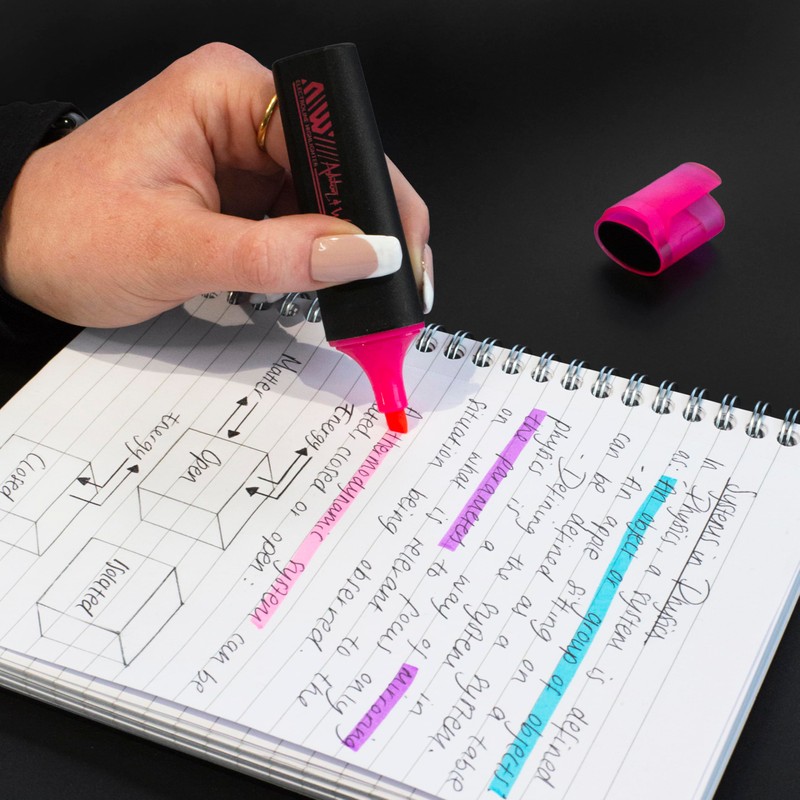 Systems in Physics
In Physics, a system is defined
as:
- An object or group of objects
- An apple sitting on a table
can be defined as a system.
- Defining the system in
physics is a way of mirroring
the parameters to focus only
on what is relevant to the
situation being observed.
A thermodynamic system can be
closed or open:
Energy
Matter
Open
Energy
Closed
Isolated